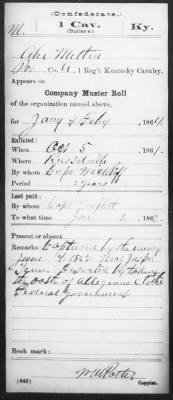 (Confederate.)
M. 1 Cav. Ky.
(Butler's)
Alex Melton
Co. A, 1 Reg't Kentucky Cavalry.
Appears on
Company Muster Roll
of the organization named above,
for Jany & Feby, 1864.
Enlisted:
When Oct 5, 1861.
Where Russelville
By whom Capt
Period 2 years
Last paid:
By whom Capt
To what time Jan 1, 1862.
Present or absent
Remarks: Captured by the enemy
June 4 1862 Near Jasper
Tenn. Deserted by taking
the oath of Allegiance to the
Federal Government
Book mark:
(642) Copyist.